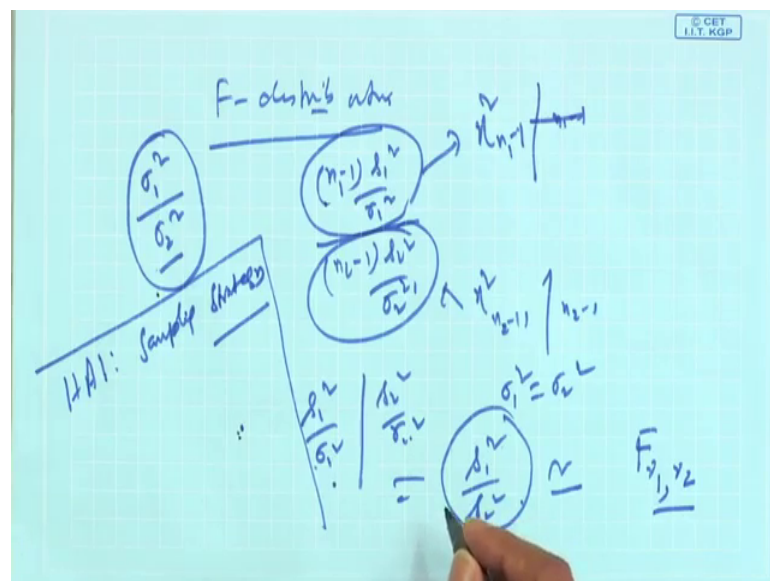 © CET
I.I.T. KGP
F-distribution
σ₁²/σ₂²
(n₁-1) s₁²/σ₁²
χ²ₙ₁₋₁
(n₂-1) s₂²/σ₂²
χ²ₙ₂₋₁ | n₂-1
HA1: Sampling Strategy
s₁²/σ₁² | s₂²/σ₂²
σ₁² = σ₂²
= s₁²/s₂² ~ F ν₁, ν₂